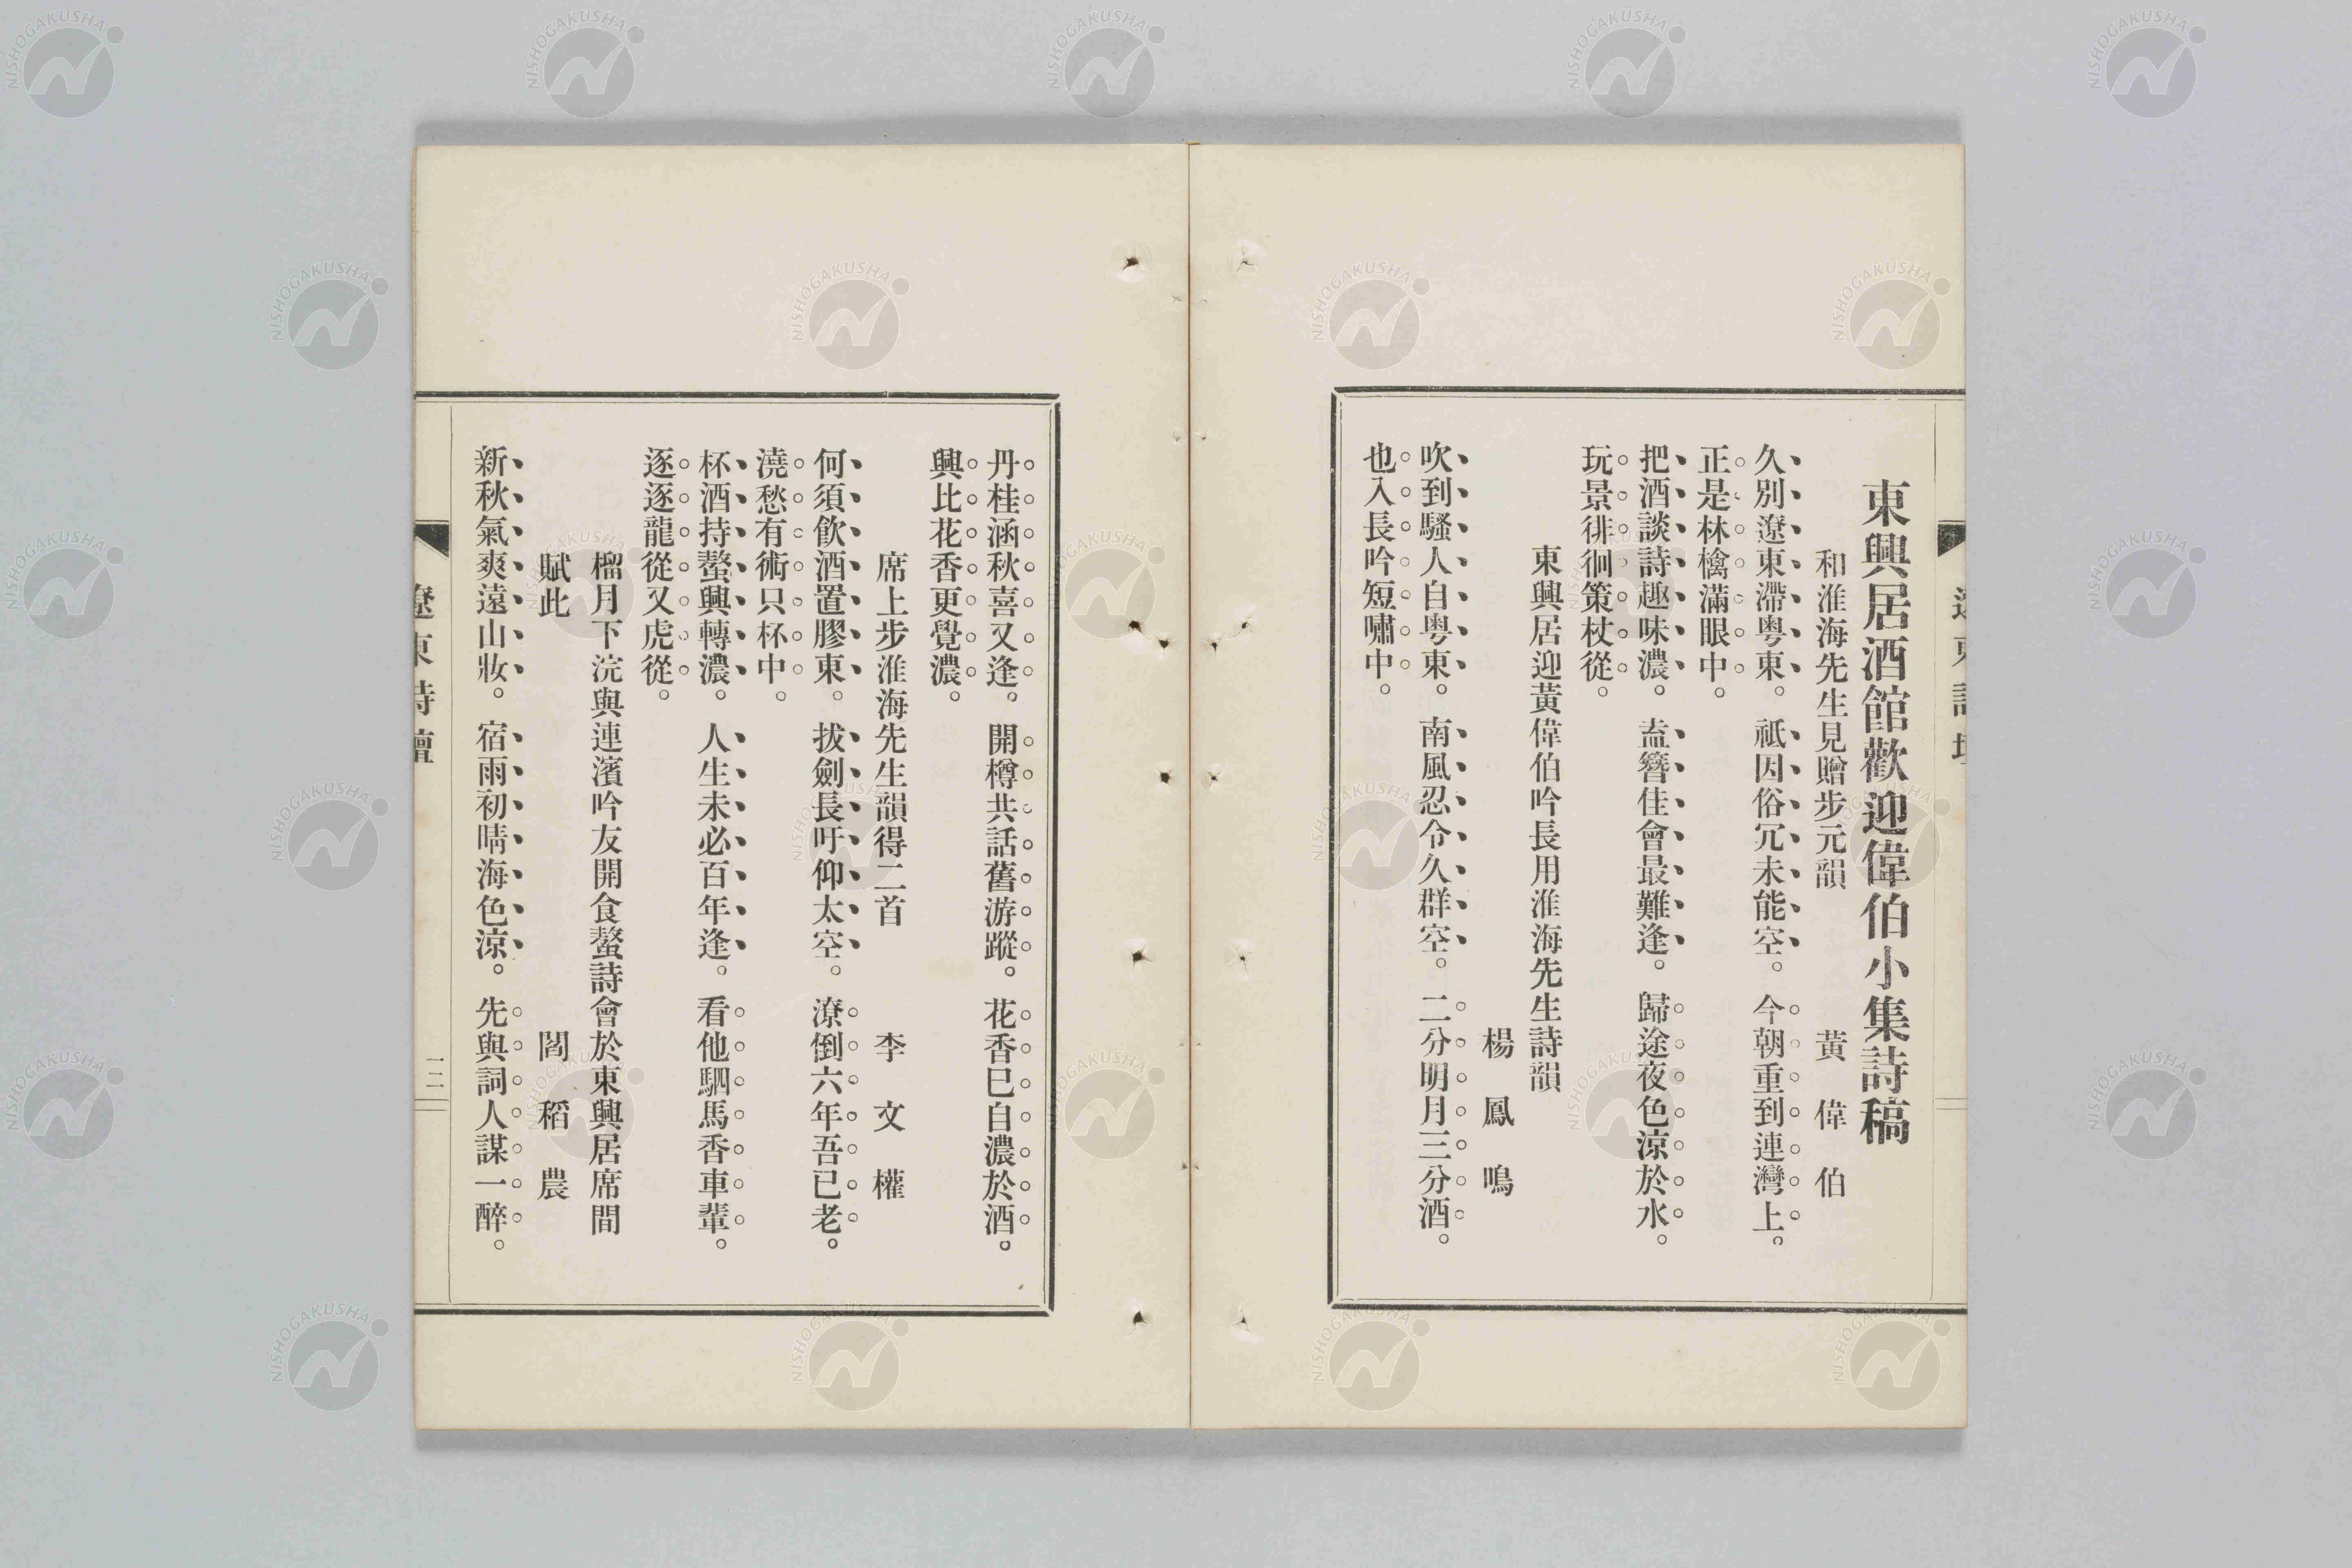 東興居酒館歡迎偉伯小集詩稿
和淮海先生見贈步元韻　黃偉伯
久別遼東滯粤東。祗因俗冗未能空。今朝重到連灣上。
正是林檎滿眼中。
把酒談詩趣味濃。盍簪佳會最難逢。歸途夜色涼於水。
玩景徘徊策杖從。
東興居迎黃偉伯吟長用淮海先生詩韻
楊鳳鳴
吹到騷人自粤東。南風忍令久群空。二分明月三分酒。
也入長吟短嘯中。
丹桂涵秋喜又逢。開樽共話舊游蹤。花香巳自濃於酒。
興比花香更覺濃。
席上步淮海先生韻得二首　李文權
何須飮酒置膠東。拔劍長吁仰太空。潦倒六年吾已老。
澆愁有術只杯中。
杯酒持螯興轉濃。人生未必百年逢。看他駟馬香車輩。
逐逐龍從又虎從。
榴月下浣與連濱吟友開食螯詩會於東興居席間
賦此　閻稻農
新秋氣爽遠山妝。宿雨初晴海色涼。先與詞人謀一醉。
遼東詩壇
二
NISHOGAKUSHA